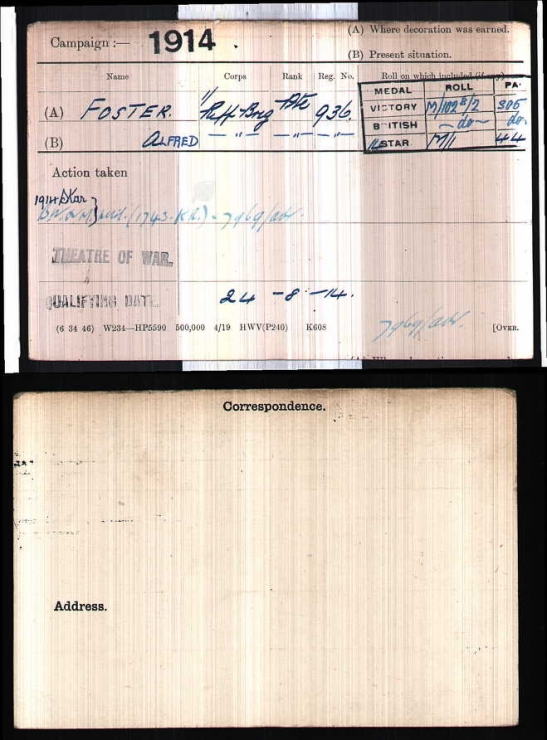 (A) Where decoration was earned.
Campaign :— 1914
(B) Present situation.
Name Corps Rank Reg. No. Roll on which included (if any)
MEDAL ROLL PA
(A) FOSTER. Rif Brig Pte 936. VICTORY M/102 B/2 305
BRITISH — do — do.
(B) ALFRED — " — — " — 14 STAR M/1 44
Action taken
1914 Star
(1743. KR.) - 7969/adv.
THEATRE OF WAR.
QUALIFYING DATE. 24 - 8 - 14.
(6 34 46) W234—HP5590 500,000 4/19 HWV(P240) K608
7969/adv. [OVER.
Correspondence.
Address.